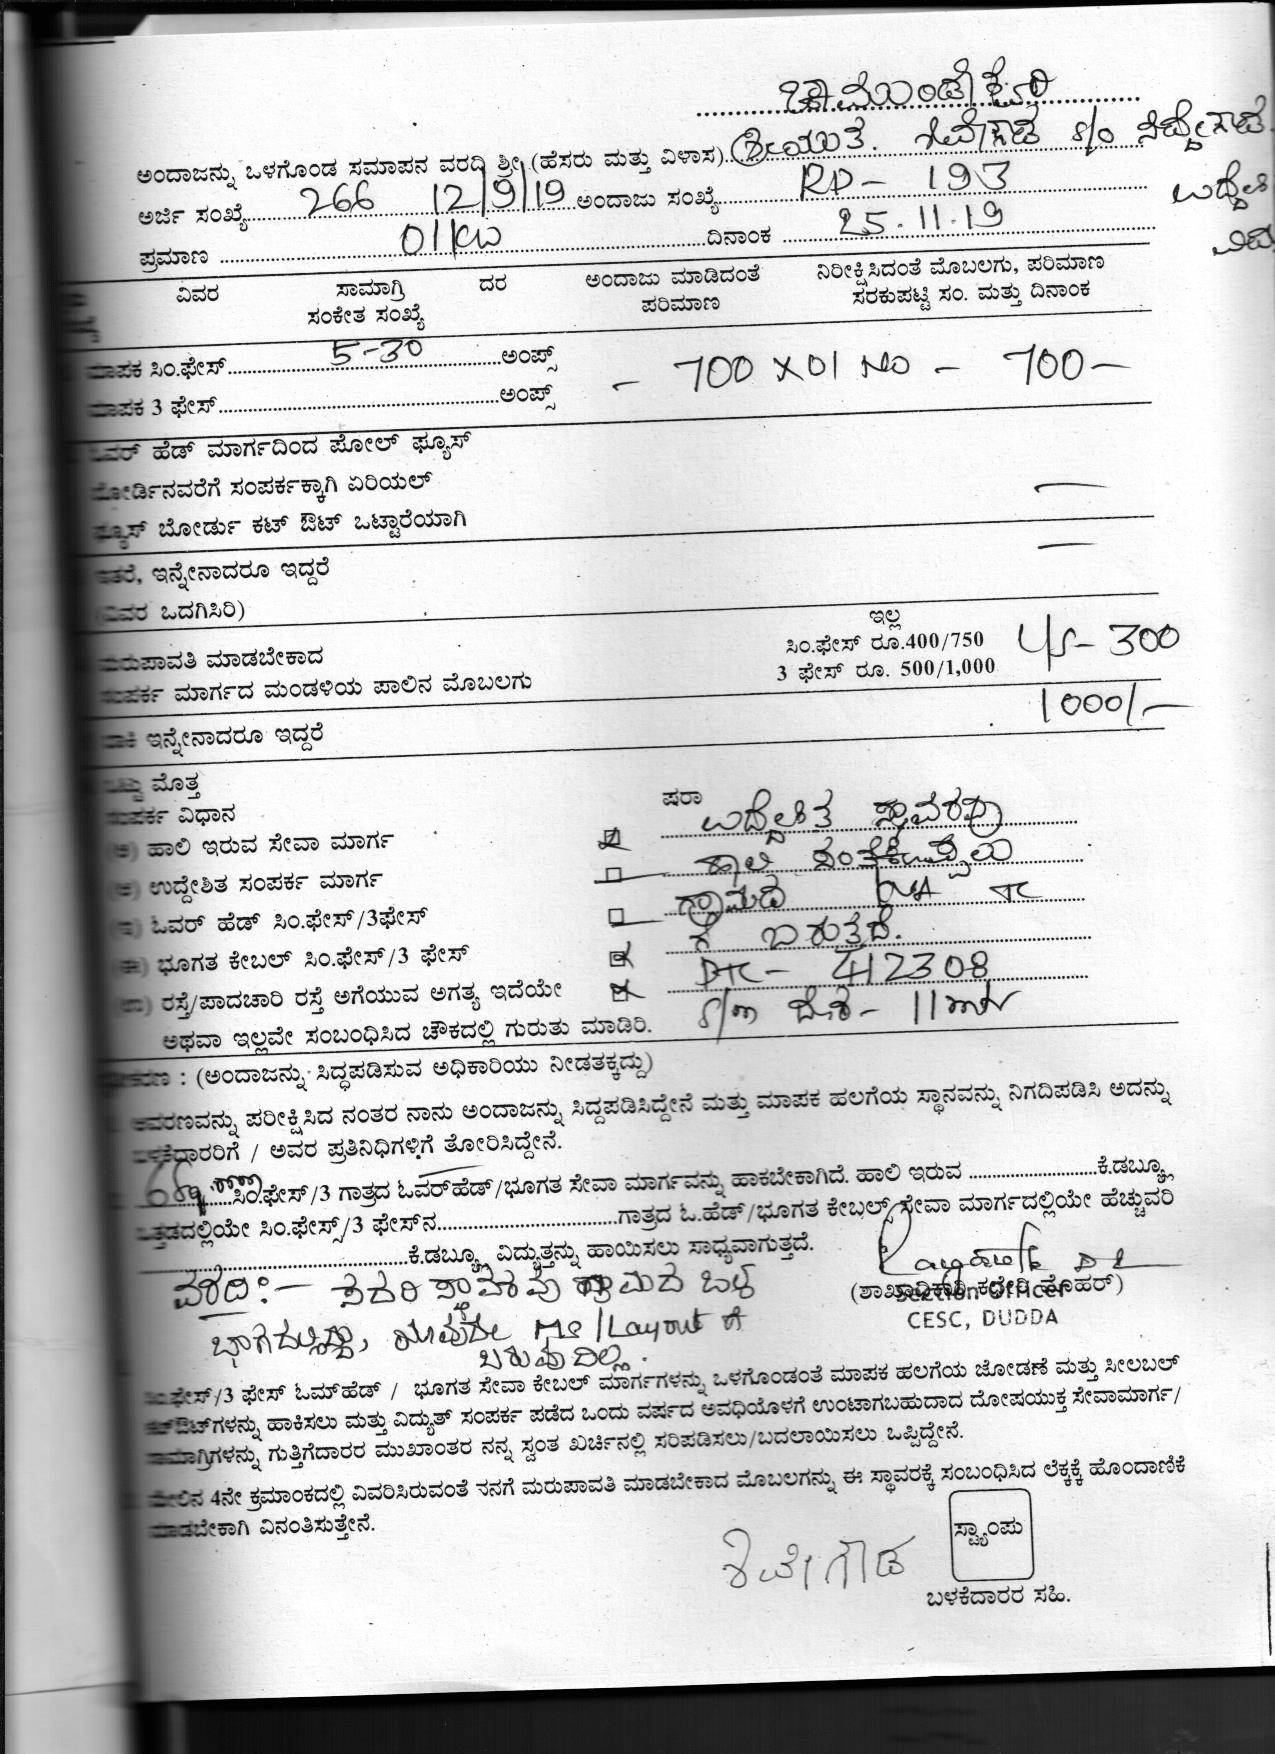 ಚಾಮುಂಡೇಶ್ವರಿ
ಅಂದಾಜನ್ನು ಒಳಗೊಂಡ ಸಮಾಪನ ವರದಿ ಶ್ರೀ (ಹೆಸರು ಮತ್ತು ವಿಳಾಸ) ಶ್ರೀಯುತ. ಶಿವೇಗೌಡ S/o
ಅರ್ಜಿ ಸಂಖ್ಯೆ 266 12/9/19 ಅಂದಾಜು ಸಂಖ್ಯೆ RD - 193
ಪ್ರಮಾಣ 01 KW ದಿನಾಂಕ 25.11.19
ವಿವರ ಸಾಮಾಗ್ರಿ ಸಂಕೇತ ಸಂಖ್ಯೆ ದರ ಅಂದಾಜು ಮಾಡಿದಂತೆ ಪರಿಮಾಣ ನಿರೀಕ್ಷಿಸಿದಂತೆ ಮೊಬಲಗು, ಪರಿಮಾಣ ಸರಕುಪಟ್ಟಿ ಸಂ. ಮತ್ತು ದಿನಾಂಕ
ಮಾಪಕ ಸಿಂ.ಫೇಸ್ 5-30 ಅಂಪ್ಸ್ - 700 X 01 No - 700 -
ಮಾಪಕ 3 ಫೇಸ್ ಅಂಪ್ಸ್
ಓವರ್ ಹೆಡ್ ಮಾರ್ಗದಿಂದ ಪೋಲ್ ಫ್ಯೂಸ್
ಬೋರ್ಡಿನವರೆಗೆ ಸಂಪರ್ಕಕ್ಕಾಗಿ ಏರಿಯಲ್
ಫ್ಯೂಸ್ ಬೋರ್ಡು ಕಟ್ ಔಟ್ ಒಟ್ಟಾರೆಯಾಗಿ
ಇತರೆ, ಇನ್ನೇನಾದರೂ ಇದ್ದರೆ
(ವಿವರ ಒದಗಿಸಿರಿ)
ಇಲ್ಲ
ಮರುಪಾವತಿ ಮಾಡಬೇಕಾದ ಸಿಂ.ಫೇಸ್ ರೂ.400/750 300
ಸಂಪರ್ಕ ಮಾರ್ಗದ ಮಂಡಳಿಯ ಪಾಲಿನ ಮೊಬಲಗು 3 ಫೇಸ್ ರೂ. 500/1,000
ಬಾಕಿ ಇನ್ನೇನಾದರೂ ಇದ್ದರೆ 1000/-
ಒಟ್ಟು ಮೊತ್ತ
ಸಂಪರ್ಕ ವಿಧಾನ ಷರಾ
(ಅ) ಹಾಲಿ ಇರುವ ಸೇವಾ ಮಾರ್ಗ ಉದ್ದೇಶಿತ ಸ್ಥಾವರವು
(ಆ) ಉದ್ದೇಶಿತ ಸಂಪರ್ಕ ಮಾರ್ಗ ಹಾಲಿ
(ಇ) ಓವರ್ ಹೆಡ್ ಸಿಂ.ಫೇಸ್/3ಫೇಸ್ ಗ್ರಾಮದ TC
(ಈ) ಭೂಗತ ಕೇಬಲ್ ಸಿಂ.ಫೇಸ್/3 ಫೇಸ್ ಗೆ ಬರುತ್ತದೆ.
(ಉ) ರಸ್ತೆ/ಪಾದಚಾರಿ ರಸ್ತೆ ಅಗೆಯುವ ಅಗತ್ಯ ಇದೆಯೇ DTC - 412308
ಅಥವಾ ಇಲ್ಲವೇ ಸಂಬಂಧಿಸಿದ ಚೌಕದಲ್ಲಿ ಗುರುತು ಮಾಡಿರಿ.
: (ಅಂದಾಜನ್ನು ಸಿದ್ಧಪಡಿಸುವ ಅಧಿಕಾರಿಯು ನೀಡತಕ್ಕದ್ದು)
ಆವರಣವನ್ನು ಪರೀಕ್ಷಿಸಿದ ನಂತರ ನಾನು ಅಂದಾಜನ್ನು ಸಿದ್ದಪಡಿಸಿದ್ದೇನೆ ಮತ್ತು ಮಾಪಕ ಹಲಗೆಯ ಸ್ಥಾನವನ್ನು ನಿಗದಿಪಡಿಸಿ ಅದನ್ನು
ಬಳಕೆದಾರರಿಗೆ / ಅವರ ಪ್ರತಿನಿಧಿಗಳಿಗೆ ತೋರಿಸಿದ್ದೇನೆ.
ಸಿಂ.ಫೇಸ್/3 ಗಾತ್ರದ ಓವರ್‌ಹೆಡ್/ಭೂಗತ ಸೇವಾ ಮಾರ್ಗವನ್ನು ಹಾಕಬೇಕಾಗಿದೆ. ಹಾಲಿ ಇರುವ ಕೆ.ಡಬ್ಲ್ಯೂ
ಒತ್ತಡದಲ್ಲಿಯೇ ಸಿಂ.ಫೇಸ್ಸ್/3 ಫೇಸ್‌ನ ಗಾತ್ರದ ಓ.ಹೆಡ್/ಭೂಗತ ಕೇಬಲ್ಸ್ ಸೇವಾ ಮಾರ್ಗದಲ್ಲಿಯೇ ಹೆಚ್ಚುವರಿ
ಕೆ.ಡಬ್ಲ್ಯೂ ವಿದ್ಯುತ್ತನ್ನು ಹಾಯಿಸಲು ಸಾಧ್ಯವಾಗುತ್ತದೆ.
ವರದಿ:- ಸದರಿ ಸ್ಥಾವರವು ಗ್ರಾಮದ ಒಳ
(ಶಾಖಾಧಿಕಾರಿ ಕಛೇರಿ ಮೊಹರ್)
Section Officer
CESC, DUDDA
ಭಾಗದಲ್ಲಿದ್ದು, ಯಾವುದೇ Layout ಗೆ
ಬರುವುದಿಲ್ಲ.
ಸಿಂ.ಫೇಸ್/3 ಫೇಸ್ ಓಮ್‌ಹೆಡ್ / ಭೂಗತ ಸೇವಾ ಕೇಬಲ್ ಮಾರ್ಗಗಳನ್ನು ಒಳಗೊಂಡಂತೆ ಮಾಪಕ ಹಲಗೆಯ ಜೋಡಣೆ ಮತ್ತು ಸೀಲಬಲ್
ಕಟ್‌ಔಟ್‌ಗಳನ್ನು ಹಾಕಿಸಲು ಮತ್ತು ವಿದ್ಯುತ್ ಸಂಪರ್ಕ ಪಡೆದ ಒಂದು ವರ್ಷದ ಅವಧಿಯೊಳಗೆ ಉಂಟಾಗಬಹುದಾದ ದೋಷಯುಕ್ತ ಸೇವಾಮಾರ್ಗ/
ಸಾಮಾಗ್ರಿಗಳನ್ನು ಗುತ್ತಿಗೆದಾರರ ಮುಖಾಂತರ ನನ್ನ ಸ್ವಂತ ಖರ್ಚಿನಲ್ಲಿ ಸರಿಪಡಿಸಲು/ಬದಲಾಯಿಸಲು ಒಪ್ಪಿದ್ದೇನೆ.
ಮೇಲಿನ 4ನೇ ಕ್ರಮಾಂಕದಲ್ಲಿ ವಿವರಿಸಿರುವಂತೆ ನನಗೆ ಮರುಪಾವತಿ ಮಾಡಬೇಕಾದ ಮೊಬಲಗನ್ನು ಈ ಸ್ಥಾವರಕ್ಕೆ ಸಂಬಂಧಿಸಿದ ಲೆಕ್ಕಕ್ಕೆ ಹೊಂದಾಣಿಕೆ
ಮಾಡಬೇಕಾಗಿ ವಿನಂತಿಸುತ್ತೇನೆ.
ಸ್ಟ್ಯಾಂಪು
ಶಿವೇಗೌಡ
ಬಳಕೆದಾರರ ಸಹಿ.